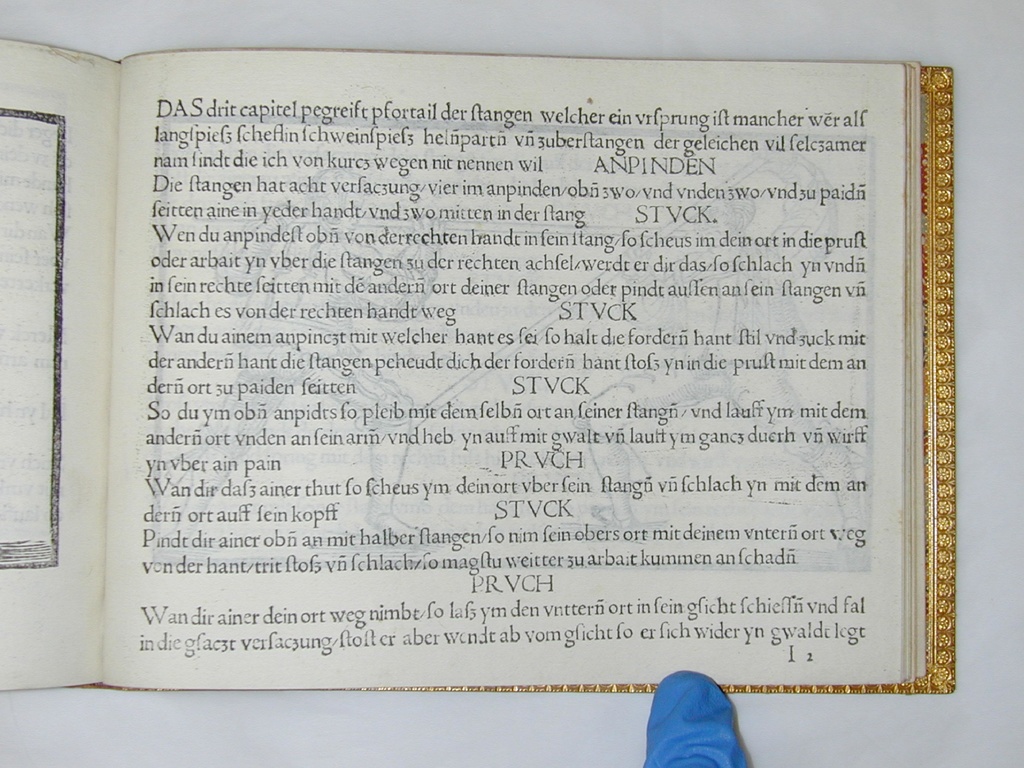 DAS drit capitel pegreift pfortail der ſtangen welcher ein vrſprung iſt mancher wer̄ alſ
langſpieſʒ ſcheflin ſchweinſpieſʒ heln̄partn̄ vn̄ ʒuberſtangen der geleichen vil ſelcʒamer
nam ſindt die ich von kurcʒ wegen nit nennen wil ANPINDEN
Die ſtangen hat acht verſacʒung/vier im anpinden/obn̄ ʒwo/vnd vnden ʒwo/vnd ʒu paidn̄
ſeitten aine in yeder handt/vnd ʒwo mitten in der ſtang STVCK.
Wen du anpindeſt obn̄ von der rechten handt in ſein ſtang/ſo ſcheus im dein ort in die pruſt
oder arbait yn vber die ſtangen ʒu der rechten achſel/werdt er dir das/ſo ſchlach yn vndn̄
in ſein rechte ſeitten mit dē andern̄ ort deiner ſtangen oder pindt auſſen an ſein ſtangen vn̄
ſchlach es von der rechten handt weg STVCK
Wan du ainem anpincʒt mit welcher hant es ſei ſo halt die fordern̄ hant ſtil vnd ʒuck mit
der andern̄ hant die ſtangen peheudt dich der fordern̄ hant ſtoſʒ yn in die pruſt mit dem an
dern̄ ort ʒu paiden ſeitten STVCK
So du ym obn̄ anpidts ſo pleib mit dem ſelbn̄ ort an ſeiner ſtangn̄/vnd lauff ym mit dem
andern̄ ort vnden an ſein arm̄/vnd heb yn auff mit gwalt vn̄ lauff ym gancʒ duerh vn̄ wirff
yn vber ain pain PRVCH
Wan dir daſʒ ainer thut ſo ſcheus ym dein ort vber ſein ſtangn̄ vn̄ ſchlach yn mit dem an
dern̄ ort auff ſein kopff STVCK
Pindt dir ainer obn̄ an mit halber ſtangen/ſo nim ſein obers ort mit deinem vntern̄ ort weg
von der hant/trit ſtoſʒ vn̄ ſchlach/ſo magſtu weitter ʒu arbait kummen an ſchadn̄
PRVCH
Wan dir ainer dein ort weg nimbt/ſo laſʒ ym den vnttern̄ ort in ſein gſicht ſchieſſn̄ vnd fal
in die gſacʒt verſacʒung/ſtoſt er aber wendt ab vom gſicht ſo er ſich wider yn gwaldt legt
I 2